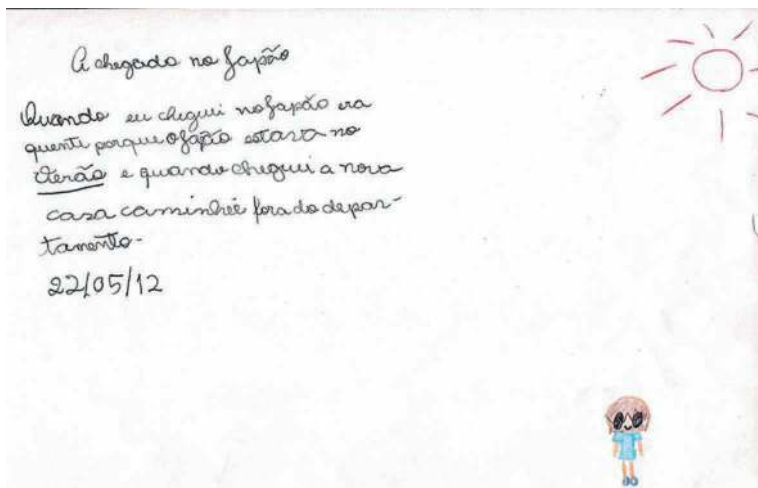 A chegada no Japão
Quando eu cheguei no Japão era
quente porque o Japão estava no
Verão e quando cheguei a nova
casa caminhei fora do depar-
tamento.
22/05/12